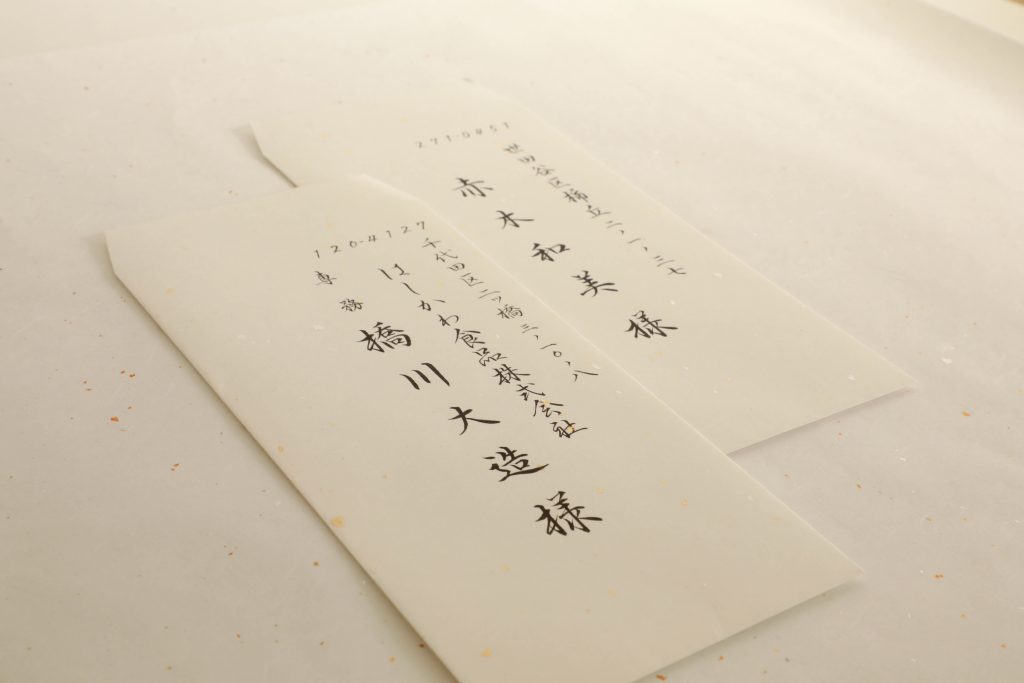 120-4127
千代田区二ツ橋三ノ一〇ノ八
はしかわ食品株式会社
専務
橋川大造様
271-0451
世田谷区柿丘二ノ一ノ三七
赤木和美様